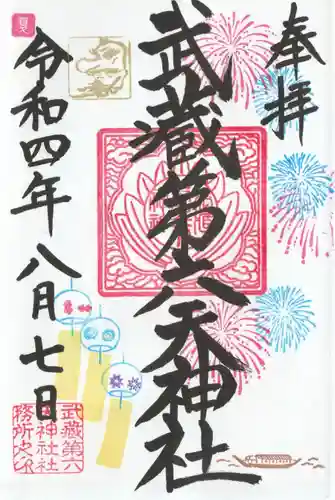 奉拝
武蔵第六天神社
夏
令和四年八月七日
武蔵第六
天神社社
務所之印